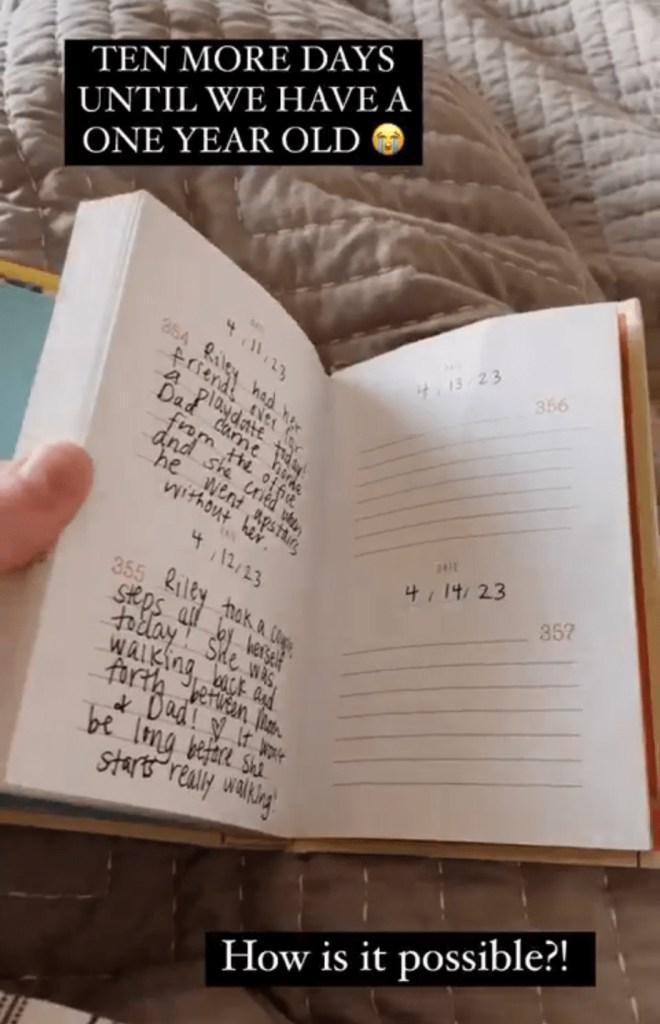 TEN MORE DAYS
UNTIL WE HAVE A
ONE YEAR OLD 😭
DATE
4/11/23
354 Riley had her
friends over for
a playdate today!
Dad came home
from the office
and she cried when
he went upstairs
without her.
DATE
4/12/23
355 Riley took a couple
steps all by herself
today! She was
walking back and
forth between Mom
& Dad! ♡ It won't
be long before she
starts really walking!
DATE
4/13/23
356
DATE
4/14/23
357
How is it possible?!